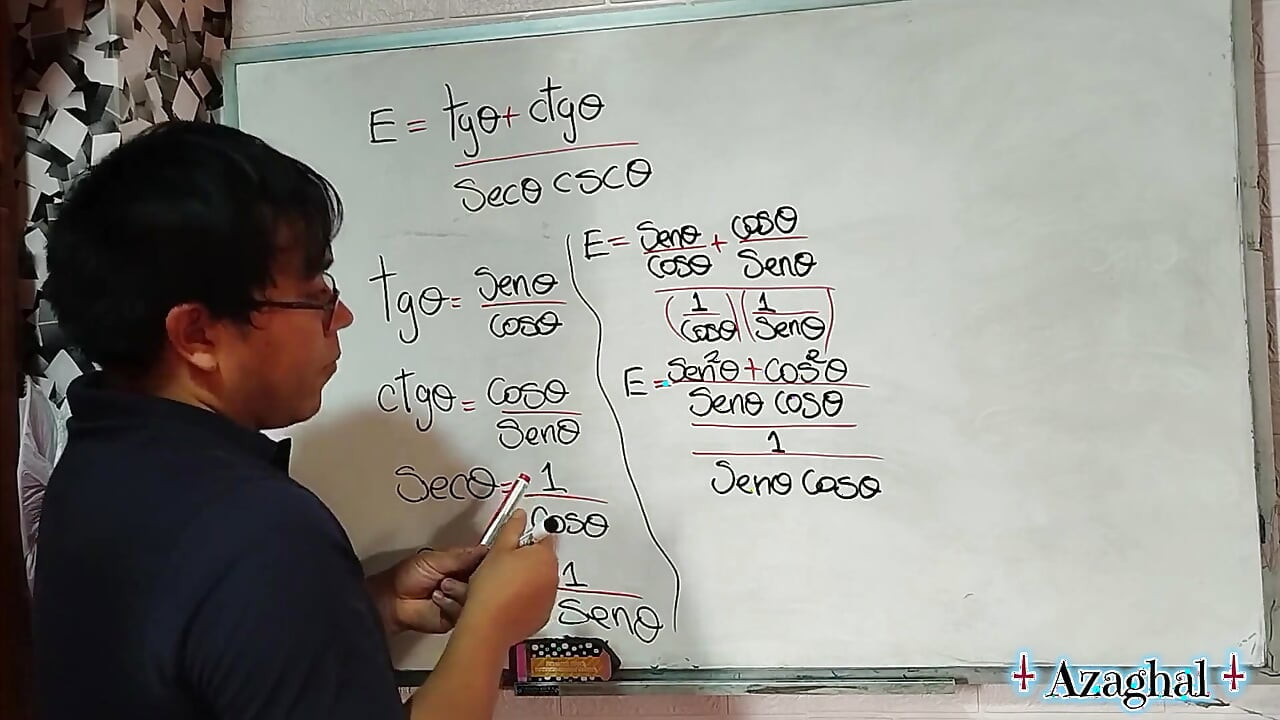 E = tgθ + ctgθ
secθ cscθ
tgθ = senθ
cosθ
ctgθ = cosθ
senθ
secθ = 1
cosθ
1
senθ
E = senθ + cosθ
cosθ senθ
(1 (1
cosθ) senθ)
E = sen²θ + cos²θ
senθ cosθ
1
senθ cosθ
Azaghal